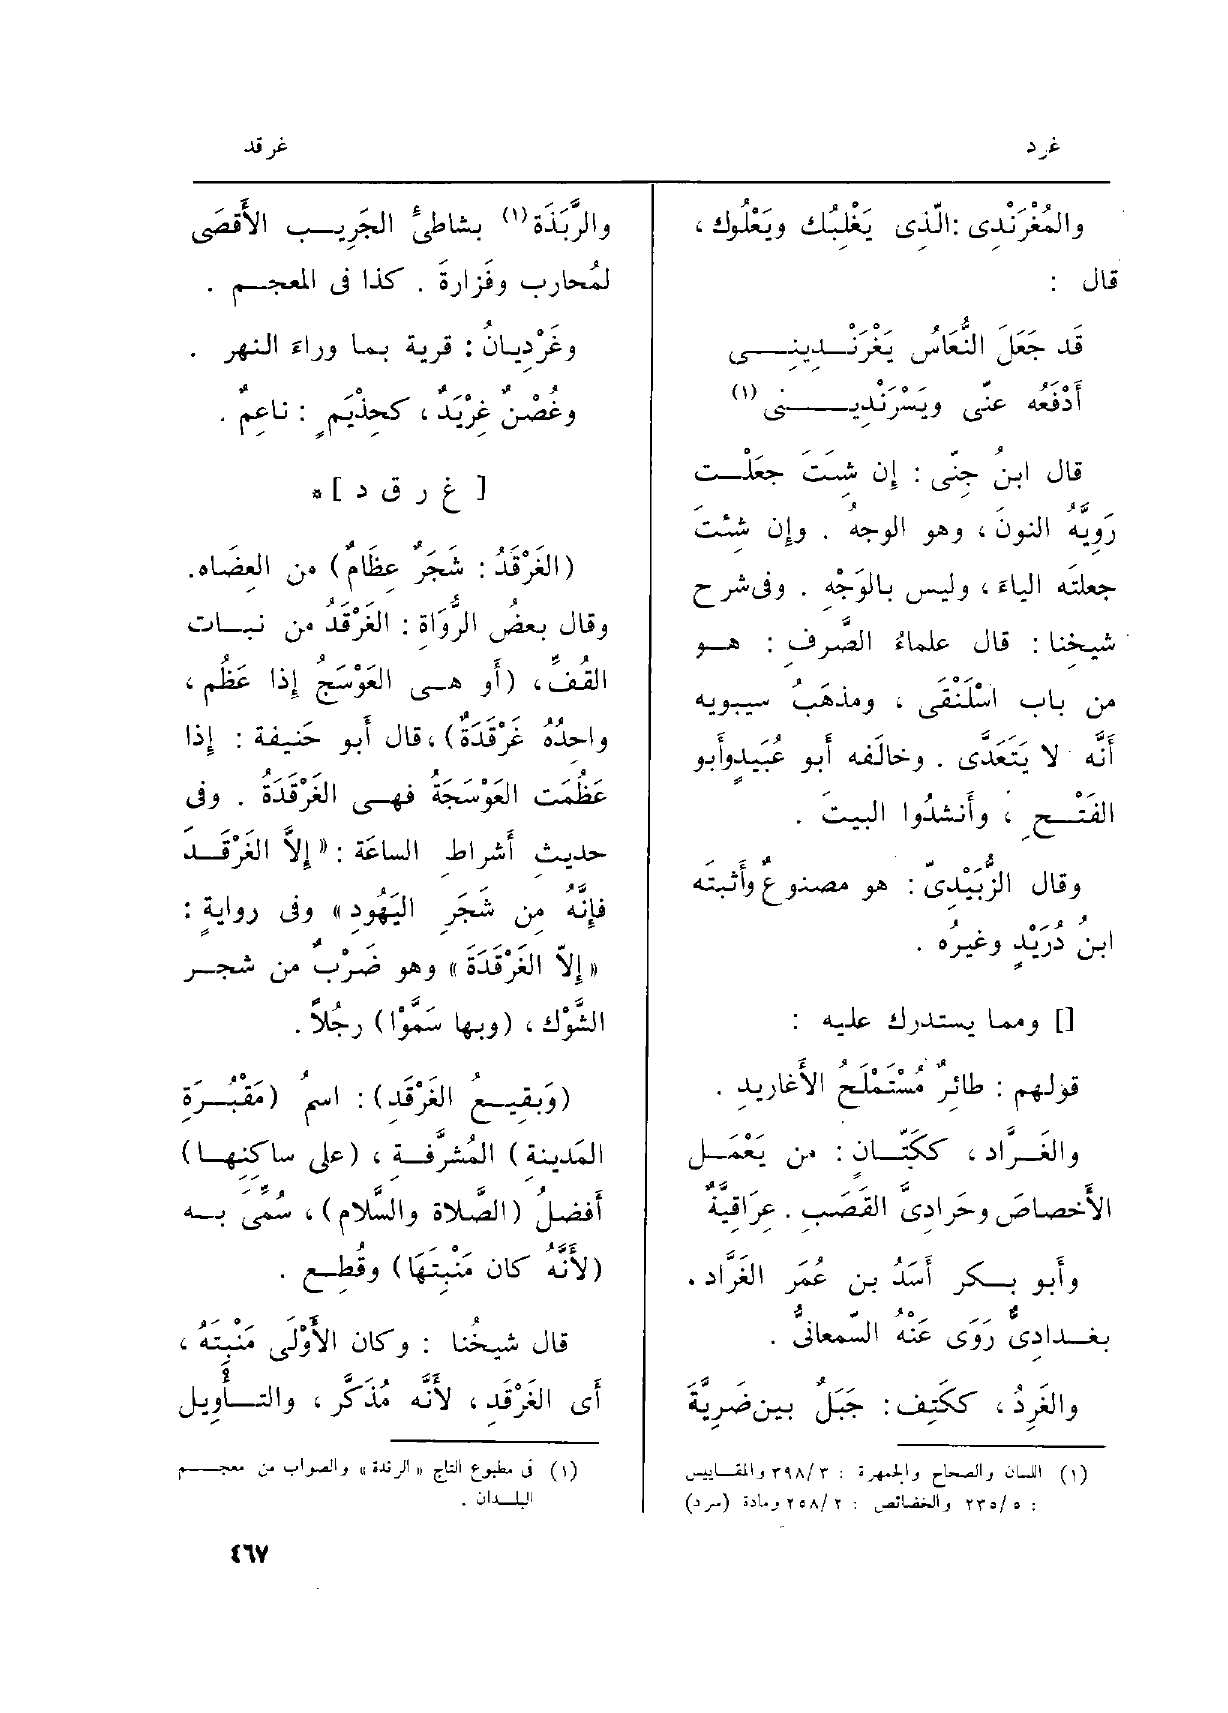 غرد
غرقد
والمُغْرَنْدِى :الّذِى يَغْلِبُك ويَعْلُوك ،
قال :
قَد جَعَلَ النُّعَاسُ يَغْرَنْـدِينِـى
أَدْفَعُه عنّى ويَسْرَنْدِيـنى (١)
قال ابنُ جِنّى : إِن شِئتَ جَعَلْـت
رَوِيَّهُ النونَ ، وهو الوجهُ . وإِن شِئْتَ
جعلتَه الياءَ ، وليس بالوَجْهِ . وفى شرح
شيخنا : قال علماءُ الصَّرفِ : هـو
من باب اسْلَنْقَى ، ومذهَبُ سيبويه
أَنَّه لا يَتَعَدَّى . وخالَفه أَبو عُبَيدٍوأَبو
الفَتْـحِ ، وأَنشدُوا البيتَ .
وقال الزُّبَيْدِىّ : هو مصنوعٌ وأَثبتَه
ابنُ دُرَيْدٍ وغيرُه .
[] ومما يستدرك عليه :
قولهم : طائِرٌ مُسْتَمْلَحُ الأَغارِيدِ .
والغَـرَّاد ، ككَتّـانٍ : من يَعْمَـل
الأَخصاصَ وحَرادِىَّ القَصَبِ . عِرَاقِيَّةٌ
وأَبو بـكر أَسَدُ بن عُمَر الغَرَّاد .
بغـدادِىٌّ رَوَى عَنْهُ السّمعانىُّ .
والغَرِدُ ، ككَتِف : جَبَلٌ بين ضَرِيَّةَ
(١) اللسان والصحاح والجمهرة : ٣٩٨/٣ والمقـاييس
: ٢٣٥/٥ والخصائص : ٢٥٨/٢ ومادة (سرد)
والرَّبَذَة(١) بشاطئِ الجَرِيـب الأَقصَى
لمُحارِب وفَزارةَ . كذا فى المعجـم .
وغَرْدِيانُ : قرية بمـا وراءَ النهر .
وغُصْنٌ غِرْيَدٌ ، كحِذْيَمٍ : ناعِمٌ .
[ غ ر ق د ] *
(الغَرْقَدُ : شَجَرٌ عِظَامٌ) من العِضَاه.
وقال بعضُ الرُّوَاةِ : الغَرْقَدُ من نبـات
القُفِّ، (أَو هـى العَوْسَجُ إِذا عَظُم ،
واحِدُهُ غَرْقَدَةٌ) ،قال أَبو حَنيفة : إِذا
عَظُمَت العَوْسَجَةُ فهـى الغَرْقَدَةُ . وفى
حديث أَشراطِ الساعَة : « إِلاَّ الغَرْقَـدَ
فإِنَّهُ مِن شَجَرِ اليَهُودِ » وفى روايةٍ :
« إِلاّ الغَرْقَدَةَ » وهو ضَرْبٌ من شجـر
الشَّوْك ، (وبها سَمَّوْا) رجُلاً .
(وَبقِيـعُ الغَرْقَدِ) : اسمُ (مَقْبُـرَةِ
المَدِينة) المُشرَّفـة ، (على ساكِنِهـا)
أَفضلُ (الصَّلاة والسَّلام) ، سُمِّىَ بـه
(لأَنَّهُ كان مَنْبِتَهَا) وقُطِـع .
قال شيخُنا : وكان الأَوْلَى مَنْبِتَهُ ،
أَى الغَرْقَدِ ، لأَنَّه مُذَكَّر ، والتـأْوِيل
(١) فى مطبوع التاج « الرندة » والصواب من معجـم
البلـدان .
٤٦٧